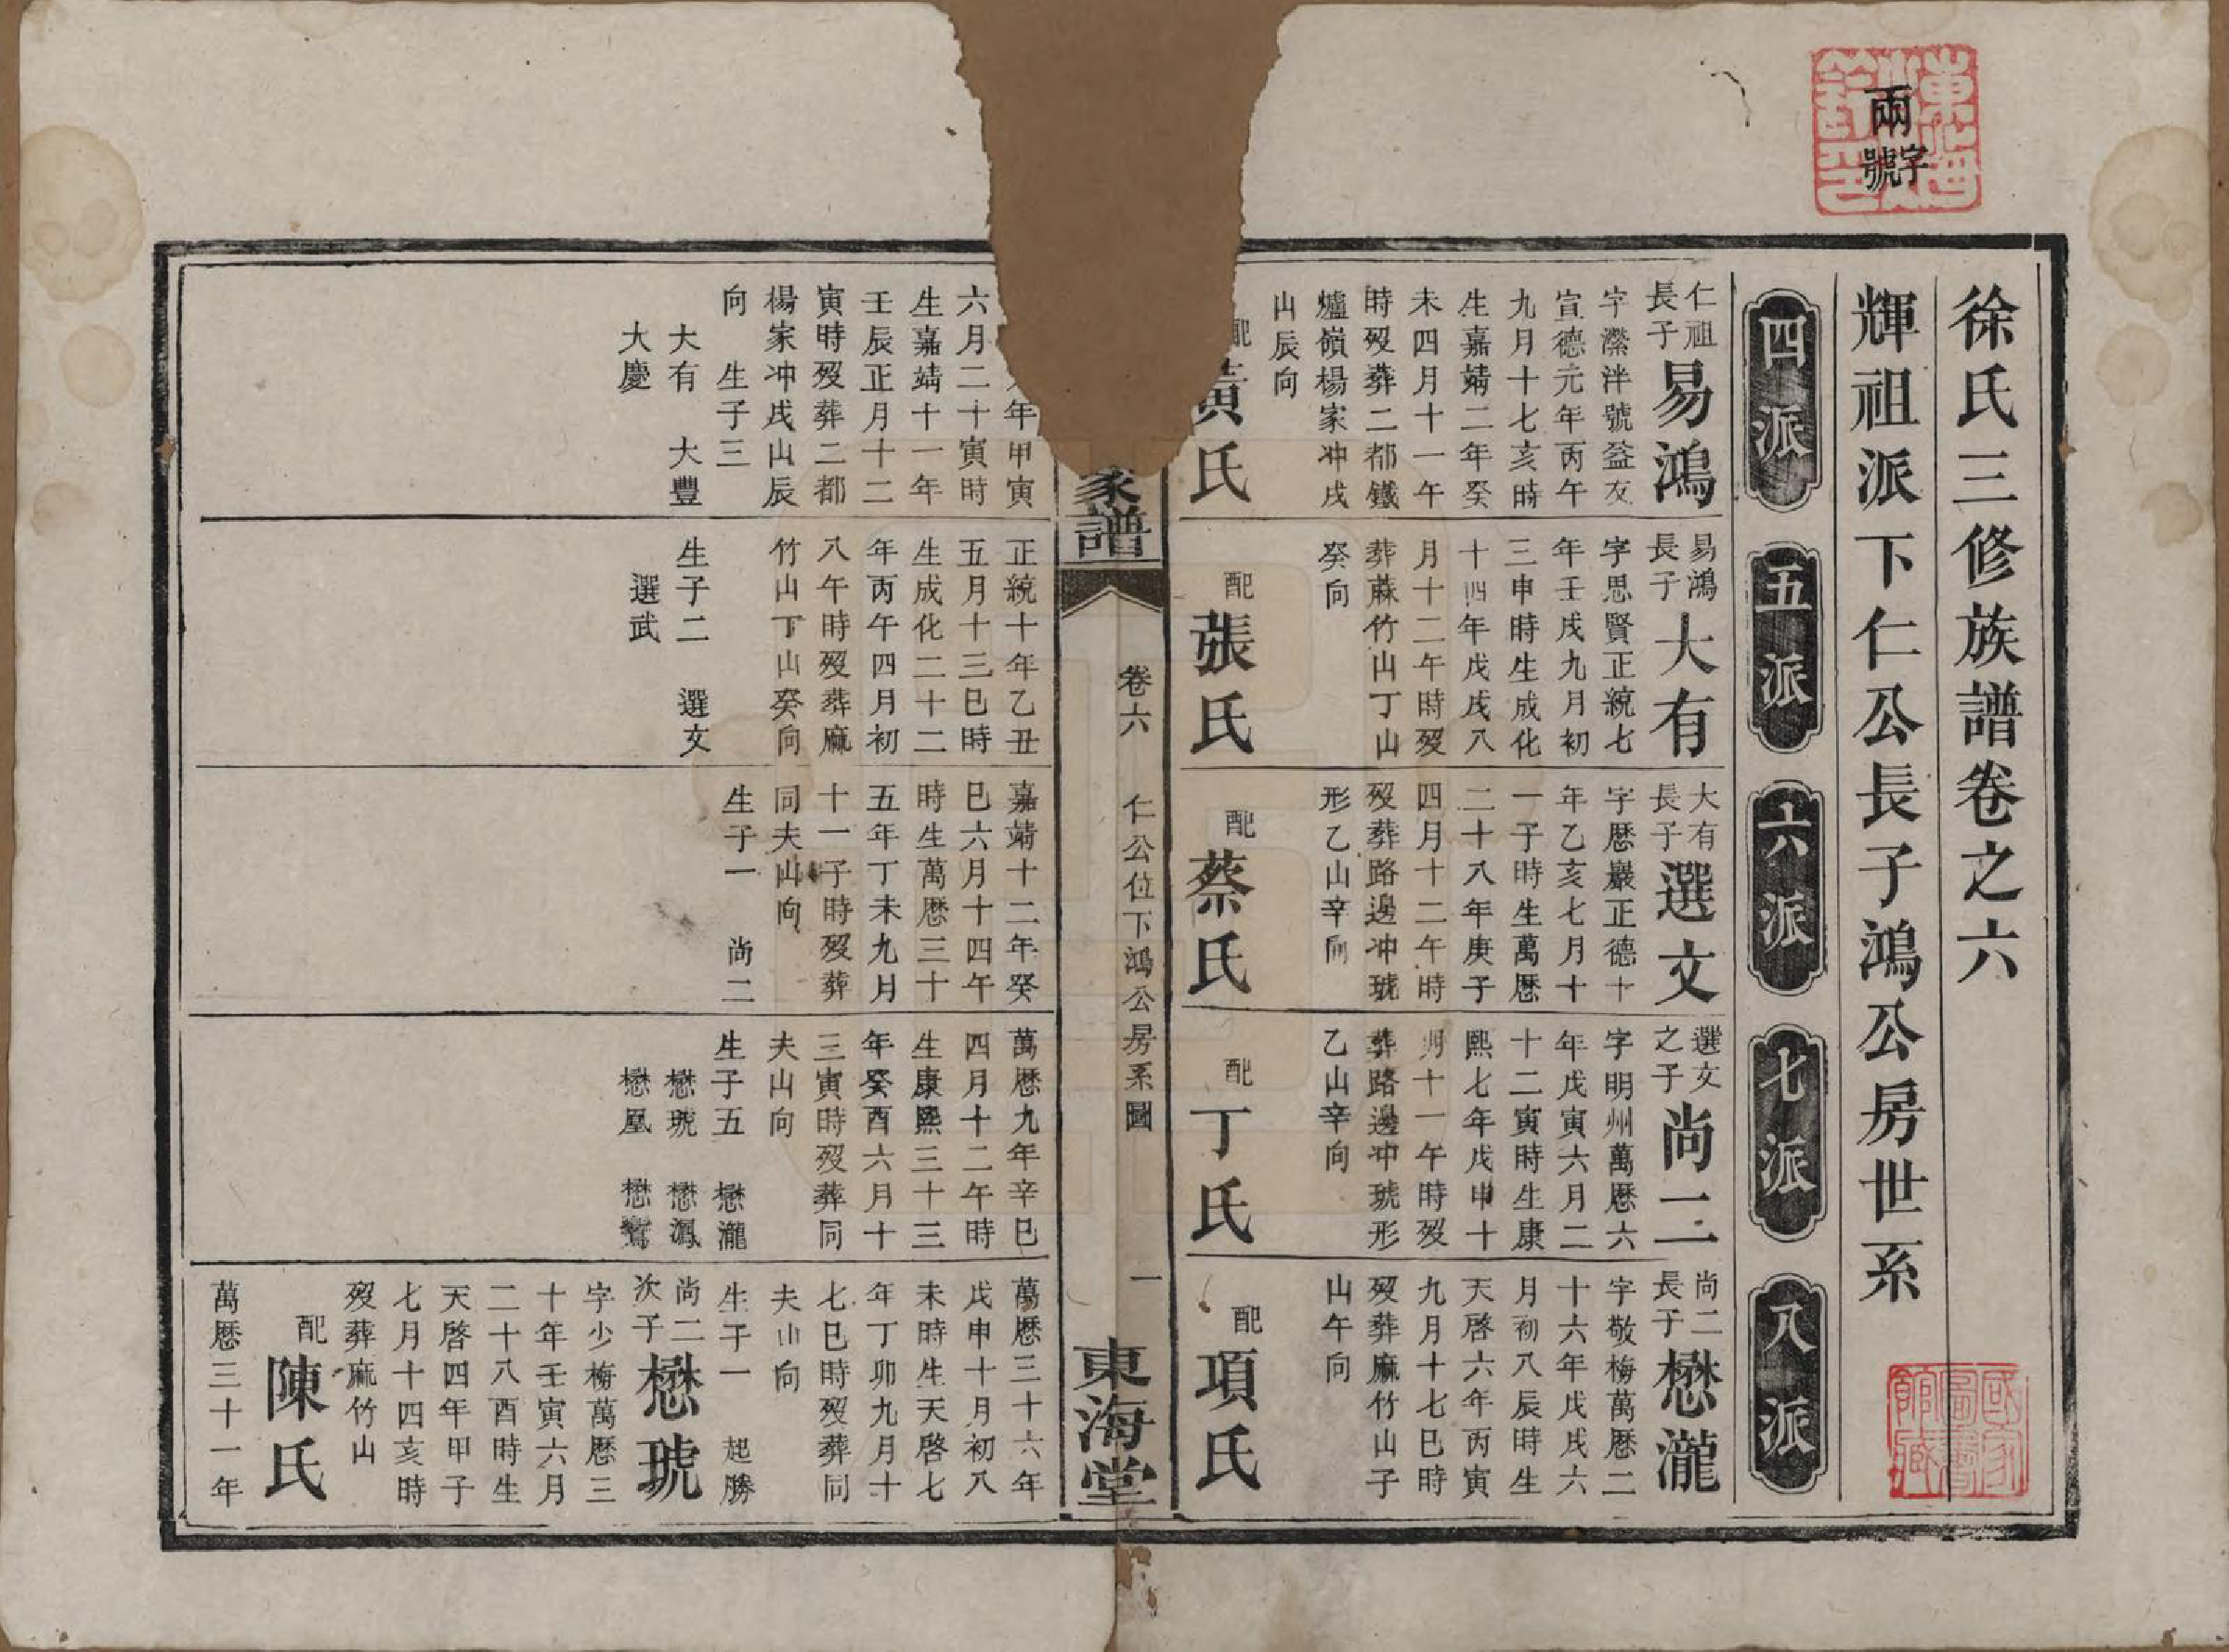 兩
字號
徐氏三修族譜卷之六
輝祖派下仁公長子鴻公房世系
四派
五派
六派
七派
八派
仁祖
長子
易鴻
字瀠泮號益友
宣德元年丙午
九月十七亥時
生嘉靖二年癸
未四月十一午
時歿葬二都鐵
爐嶺楊家冲戌
山辰向
配
黃氏
年甲寅
六月二十寅時
生嘉靖十一年
壬辰正月十二
寅時歿葬二都
楊家冲戌山辰
向 生子三
大有 大豐
大慶
易鴻
長子
大有
字思賢正統七
年壬戌九月初
三申時生成化
十四年戊戌八
月十二午時歿
葬蔴竹山丁山
癸向
配
張氏
正統十年乙丑
五月十三巳時
生成化二十二
年丙午四月初
八午時歿葬麻
竹山丁山癸向
生子二 選文
選武
大有
長子
選文
字歷巖正德十
年乙亥七月十
一子時生萬歷
二十八年庚子
四月十二午時
歿葬路邊冲琥
形乙山辛向
配
蔡氏
嘉靖十二年癸
巳六月十四午
時生萬歷三十
五年丁未九月
十一子時歿葬
同夫山向
生子一 尚二
選文
之子
尚二
字明州萬歷六
年戊寅六月二
十二寅時生康
熙七年戊申十
月十一午時歿
葬路邊冲琥形
乙山辛向
配
丁氏
萬歷九年辛巳
四月十二午時
生康熙三十三
年癸酉六月十
三寅時歿葬同
夫山向
生子五 懋瀧
懋琥 懋
懋鳳 懋
尚二
長子
懋瀧
字敬梅萬歷二
十六年戊戌六
月初八辰時生
天啓六年丙寅
九月十七巳時
歿葬麻竹山子
山午向
配
項氏
萬歷三十六年
戊申十月初八
未時生天啓七
年丁卯九月十
七巳時歿葬同
夫山向
生子一 起勝
尚二
次子
懋琥
字少梅萬歷三
十年壬寅六月
二十八酉時生
天啓四年甲子
七月十四亥時
歿葬麻竹山
配
陳氏
萬歷三十一年
家譜
卷六
仁公位下鴻公房系圖
一
東海堂
國家圖書館藏